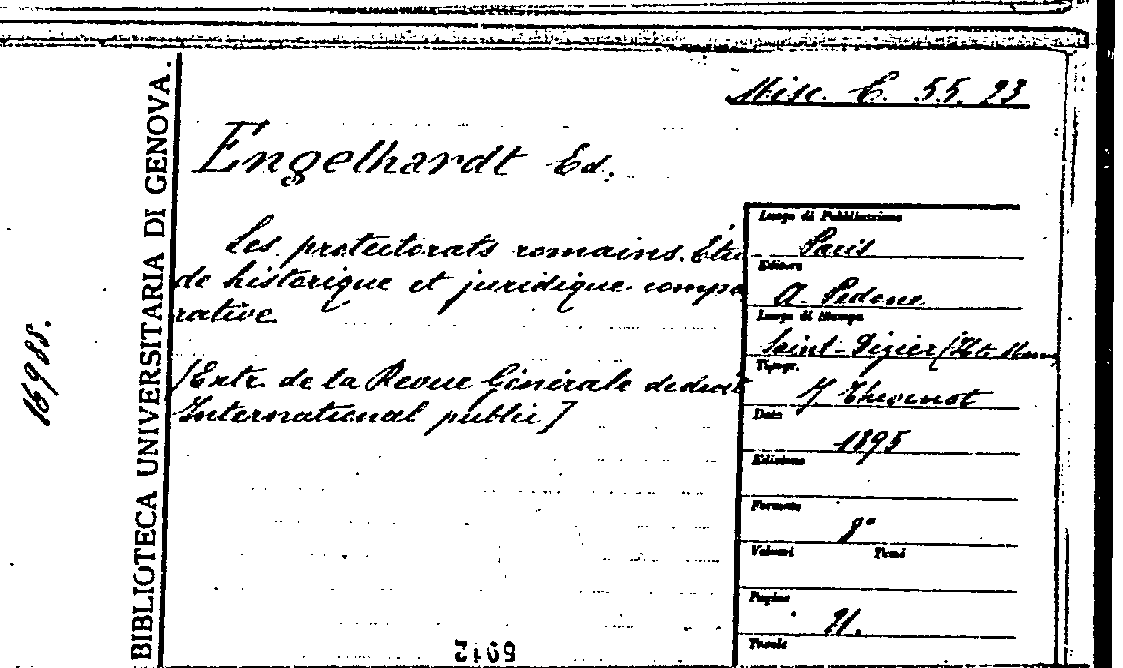 Misc. C. 55. 23
BIBLIOTECA UNIVERSITARIA DI GENOVA.
16988.
Engelhardt Ed.
Les protectorats romains. Étu
de historique et juridique compa
rative.
[Extr. de la Revue Générale de droit
International public]
Luogo di Pubblicazione
Paris
Editore
A. Pedone
Luogo di Stampa
Saint-Dizier (Hte Marne
Tipogr.
J Thévenot
Data
1895
Edizione
Formato
8°
Volumi Tomi
Pagine
21.
Tavole